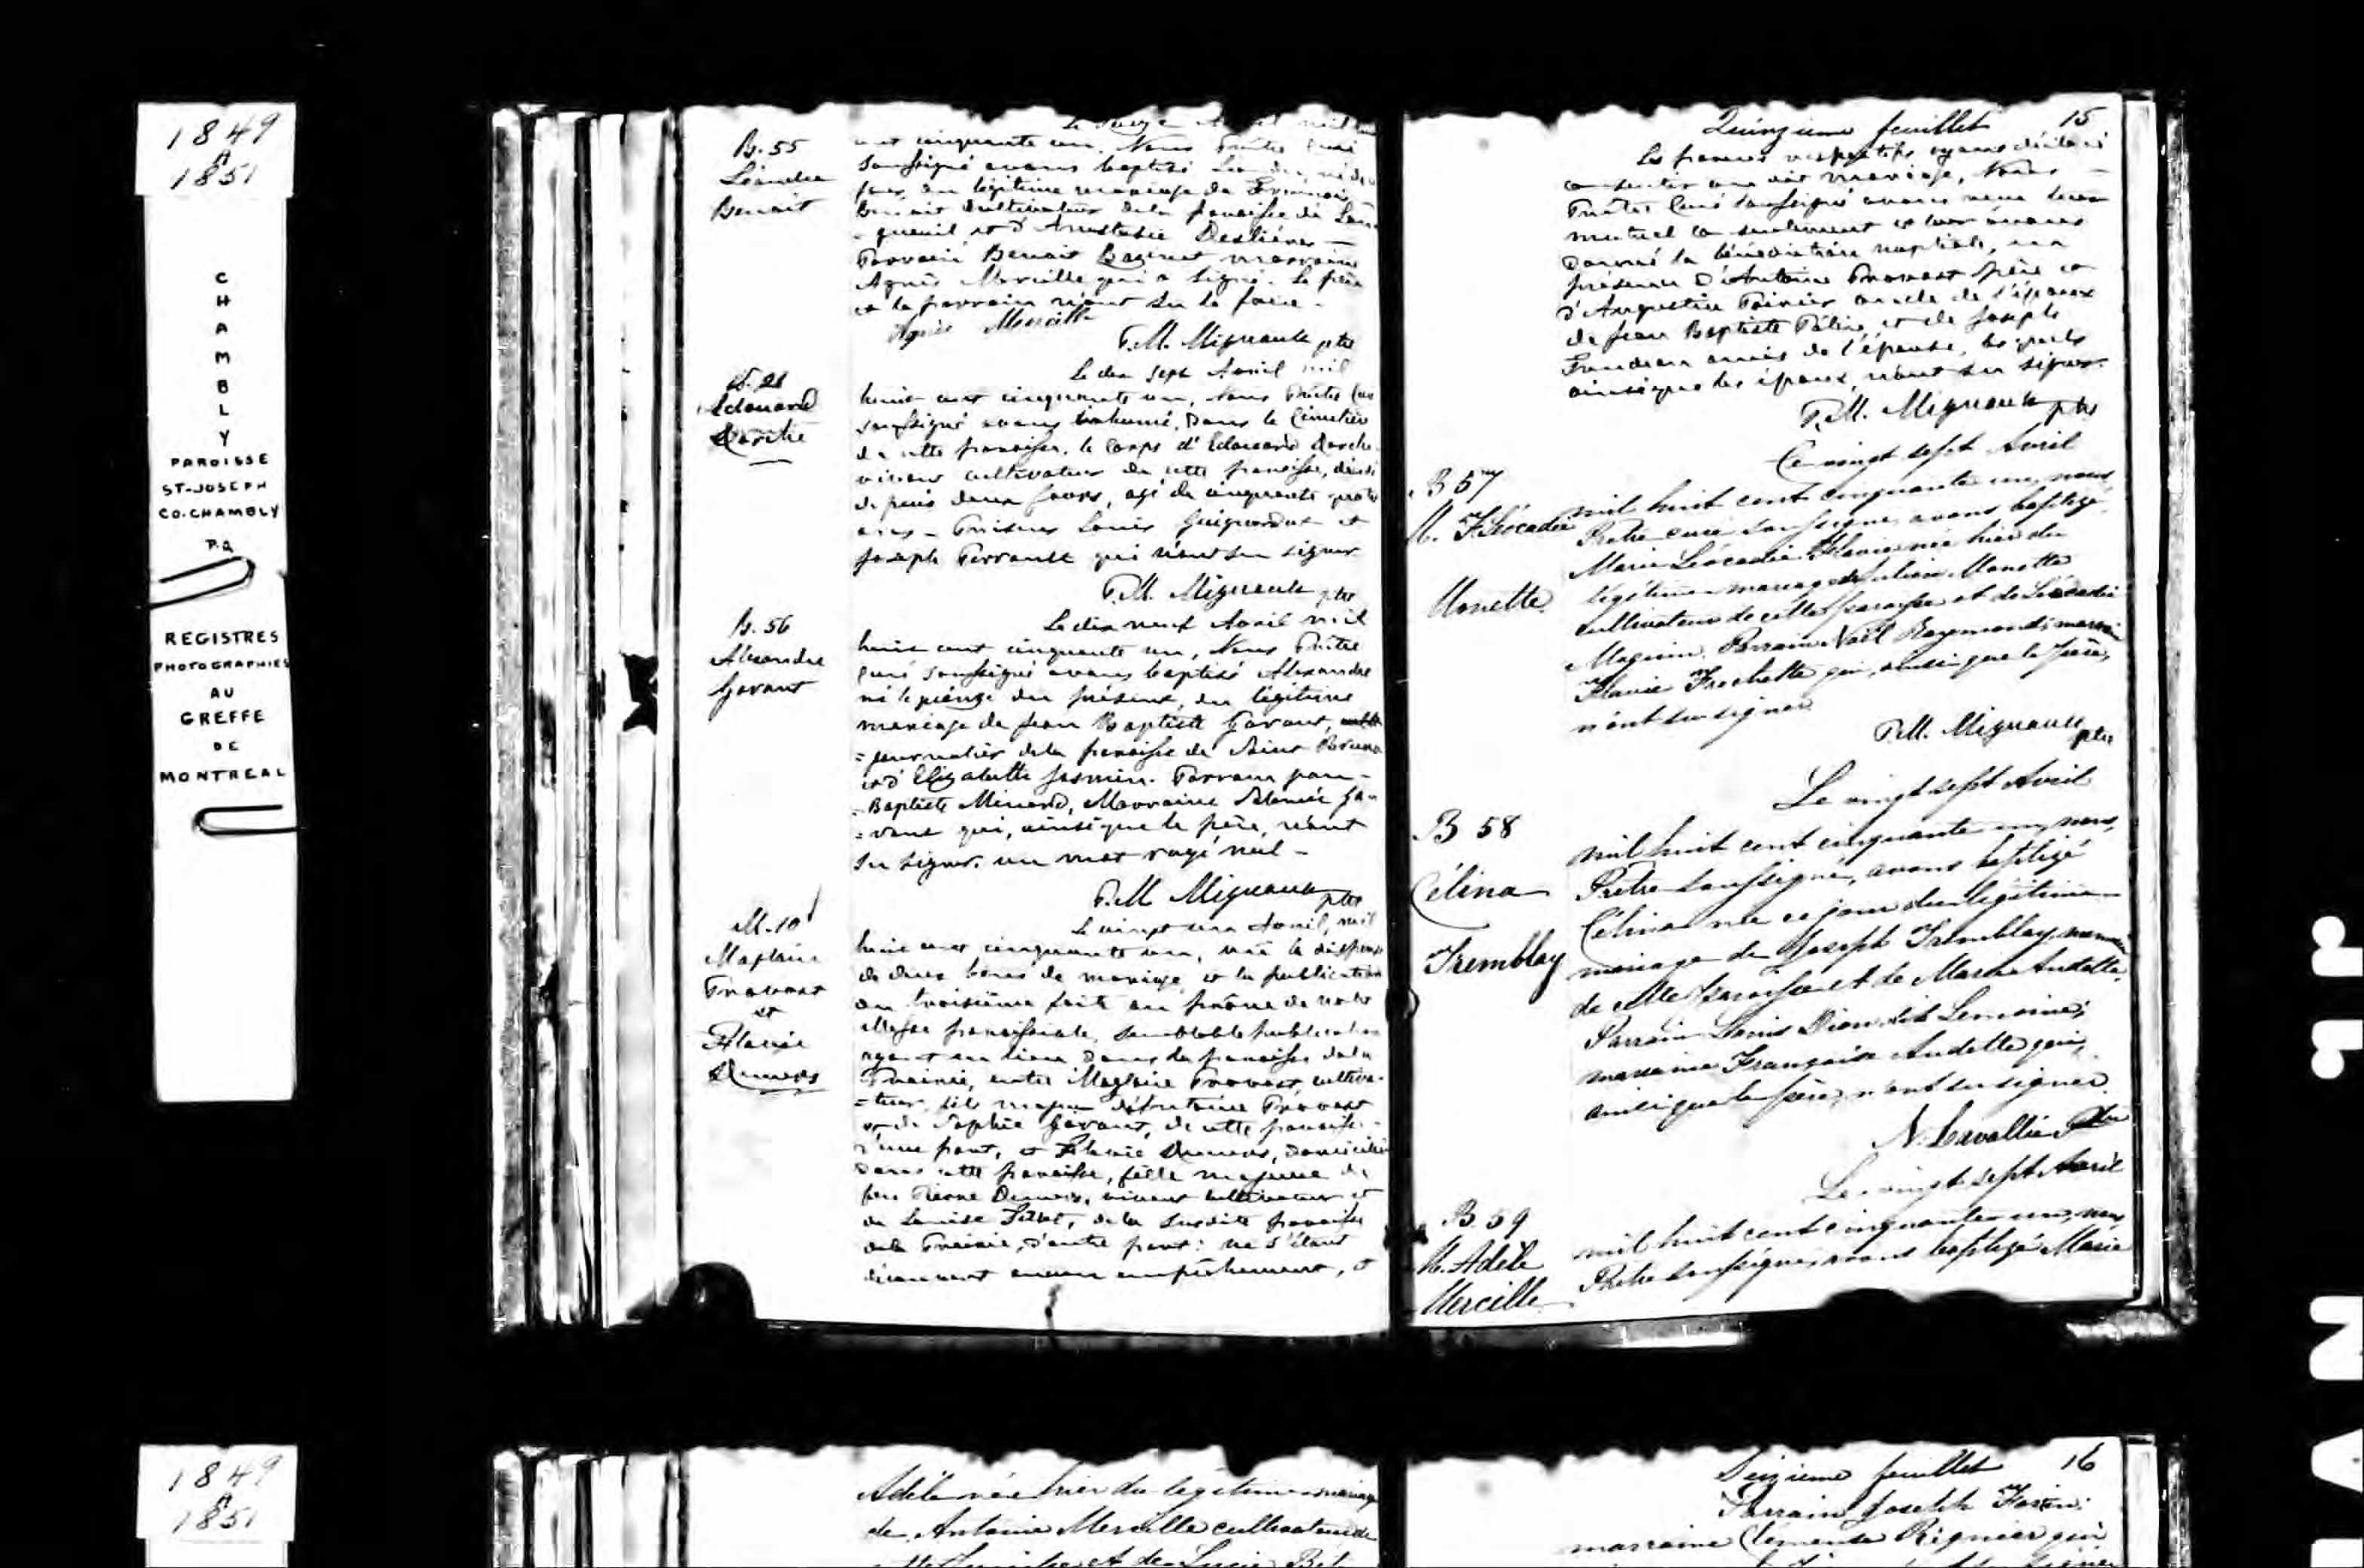 1849
A
1851
C
H
A
M
B
L
Y
PAROISSE
ST-JOSEPH
CO. CHAMBLY
P.Q
REGISTRES
PHOTOGRAPHIES
AU
GREFFE
DE
MONTREAL
B. 55
Léandre
Benoit
Le Avril mil
cent cinquante un, Nous Prêtre Curé
soussigné avons baptisé
jour, du légitime mariage de
Benoit cultivateur de la paroisse de Lon
gueuil et d'Anastasie
Parrain Benoit marraine
Agnès Mercille qui a signé. Le père
et le parrain n'ont su le faire.
Agnès Mercille
P.M. Mignault ptre
Le dix sept Avril mil
Edouard
huit cent cinquante un, Nous Prêtre Curé
soussigné avons inhumé, dans le Cimetière
de cette paroisse, le corps d'Edouard
vivant cultivateur de cette paroisse, décédé
depuis deux jours, agé de cinquante quatre
ans - Présens Louis et
Joseph Perrault qui n'ont su signer
P.M. Mignault ptre
B. 56
Alexandre
Gavant
Le dix neuf Avril mil
huit cent cinquante un, Nous Prêtre
Curé soussigné avons baptisé Alexandre
né le quinze du présent, du légitime
mariage de Jean Baptiste Gavant,
= journalier de la paroisse de Saint Bruno
et d'Elizabeth Jasmin. Parrain Jean-
= Baptiste Menard, Marraine Salomée Ga-
= vant qui, ainsi que le père, n'ont
su signer. un mot rayé nul -
P.M. Mignault ptre
M. 10
Magloire
Provost
et
Flavie
Demers
Le vingt un Avril, mil
huit cent cinquante un, vu la dispense
de deux bans de mariage, et la publication
du troisième faite au prône de notre
Messe paroissiale, semblable publication
ayant eu lieu dans la paroisse de la
Prairie, entre Magloire Provost cultiva-
= teur, fils majeur d'Antoine Provost
et de Sophie Gavant, de cette paroisse
d'une part, et Flavie Demers, domiciliée
dans cette paroisse, fille majeure de
feu Pierre Demers, vivant cultivateur et
de Louise de la susdite paroisse
de la Prairie, d'autre part: ne s'étant
découvert aucun empêchement, et
Quinzième feuillet 15
les parents respectifs ayant déclaré
consentir au dit mariage, Nous
Prêtre Curé soussigné avons reçu leur
mutuel consentement et leur avons
donné la bénédiction nuptiale, en
présence d'Antoine Provost père et
d'Augustin Poirier oncle de l'époux
de Jean Baptiste et de Joseph
amis de l'épouse, lesquels
ainsi que les époux, n'ont su signer.
P.M. Mignault ptre
B 57
M. F. Léocadie
Monette
Ce vingt sept Avril
mil huit cent cinquante un, nous
Prêtre curé soussigné, avons baptizé
Marie Léocadie Flavie née hier du
légitime mariage de Julien Monette
cultivateur de cette paroisse et de Léocadie
Magnin. Parrain Noël Raymond; marraine
Flavie Frechette qui, ainsi que le père,
n'ont su signer
P.M. Mignault ptre
B 58
Célina
Tremblay
Le vingt sept Avril
mil huit cent cinquante un, nous,
Prêtre soussigné, avons baptizé
Célina née ce jour du légitime
mariage de Joseph Tremblay
de cette paroisse et de Marie Audette.
Parrain Louis Dion dit Lemoine;
marraine Françoise Audette qui,
ainsi que le père, n'ont su signer
N. Lavallée Ptre
B 59
M. Adèle
Mercille
Le vingt sept Avril
mil huit cent cinquante un, nous
Prêtre soussigné, avons baptizé Marie
1849
A
1851
Adèle née hier du légitime mariage
de Antoine Mercille cultivateur de
Seizième feuillet 16
Parrain Joseph
marraine Clémence qui